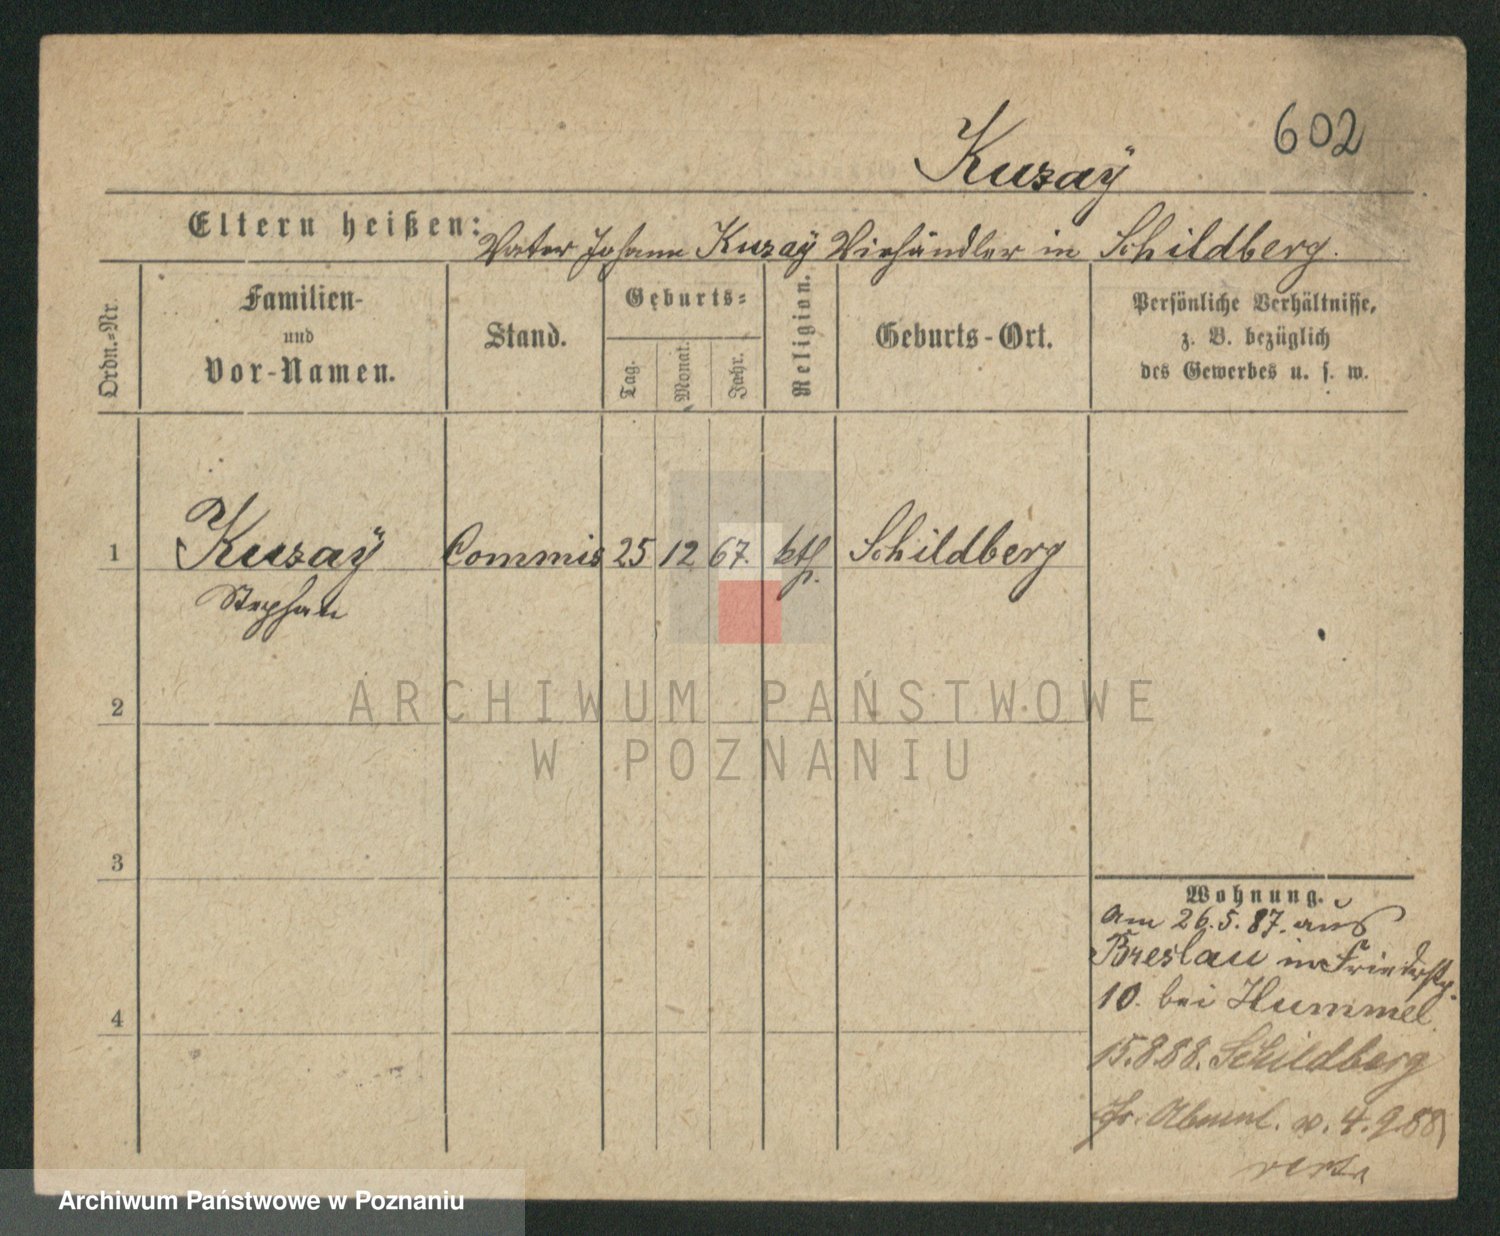 602
Kuzaÿ
Eltern heißen: Vater Johann Kuzaÿ Viehändler in Schildberg.
Ordn.-Nr.
Familien- und Vor-Namen.
Stand.
Geburts-
Tag.
Monat.
Jahr.
Religion.
Geburts-Ort.
Persönliche Verhältnisse,
z. B. bezüglich
des Gewerbes u. s. w.
1 Kuzaÿ Commis 25 12 67. kth. Schildberg
Stephan
2
3
4
Wohnung.
Am 26.5.87. aus
Breslau in Friedrstr.
10. bei Hummel
15.8.88. Schildberg
v. 4.9.88
ARCHIWUM PAŃSTWOWE
W POZNANIU
Archiwum Państwowe w Poznaniu